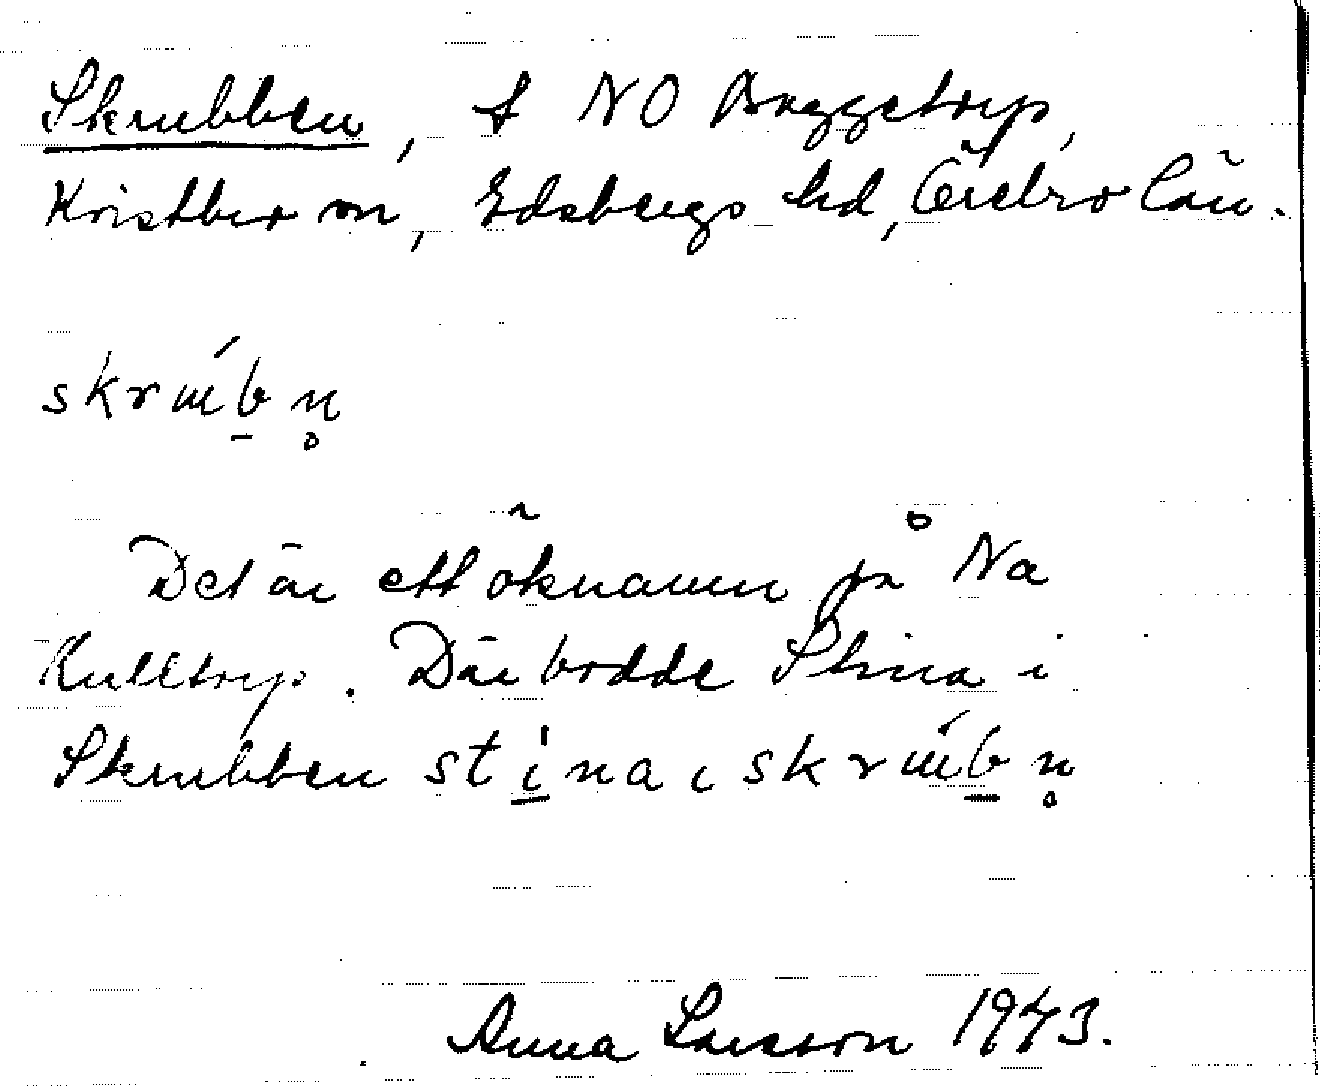 Skrubben, t NO Baggetorp,
Kvistbro sn, Edsbergs hd, Örebro län.
skrúb̠n̥
Det är ett öknamn på Na
Kulltorp. Där bodde Stina i
Skrubben sti̠na i skrúb̠n̥
Anna Larsson 1943.